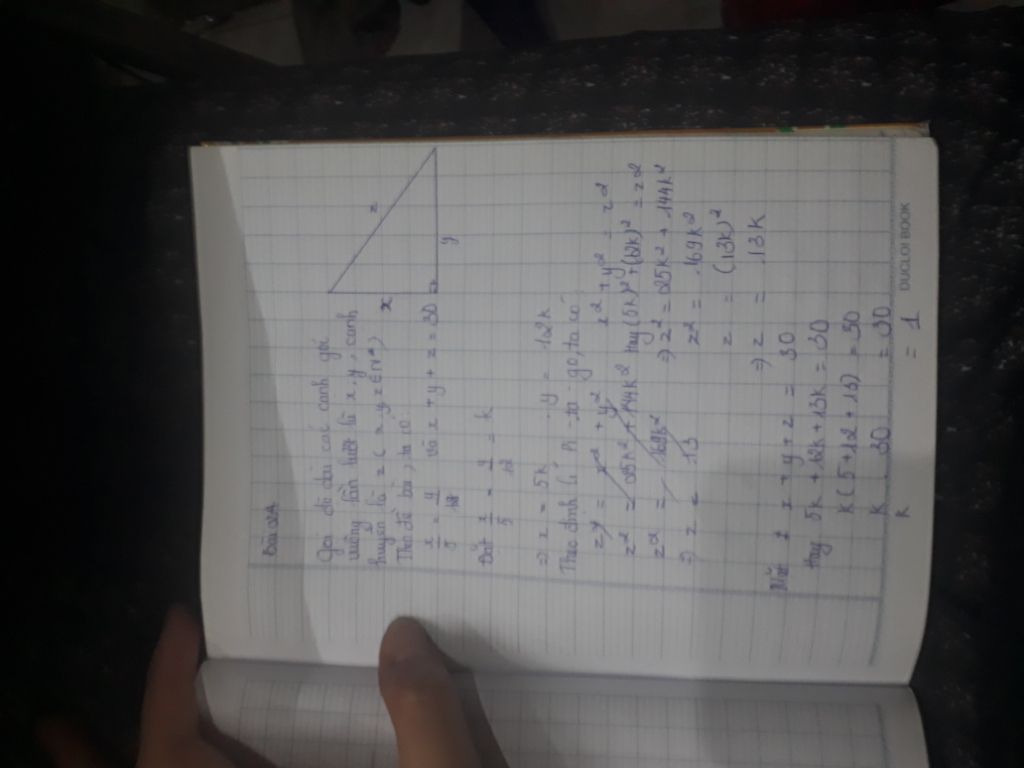 Bài 24
Gọi độ dài các cạnh góc
vuông lần lượt là x, y, cạnh
huyền là z ( x, y, z ∈ N*)
Theo đề bài, ta có:
x/5 = y/12 và x + y + z = 30
Đặt x/5 = y/12 = k
⇒ x = 5k y = 12k
Theo định lí Pi-ta-go, ta có:
x² + y² = z²
Hay (5k)² + (12k)² = z²
⇒ z² = 25k² + 144k²
z² = 169k²
z = (13k)²
⇒ z = 13k
z² = 25k² + 144k²
z² = 169k²
⇒ z = 13
x + y + z = 30
Hay 5k + 12k + 13k = 30
k (5 + 12 + 13) = 30
k . 30 = 30
k = 1
x
y
z
DUCLOI BOOK